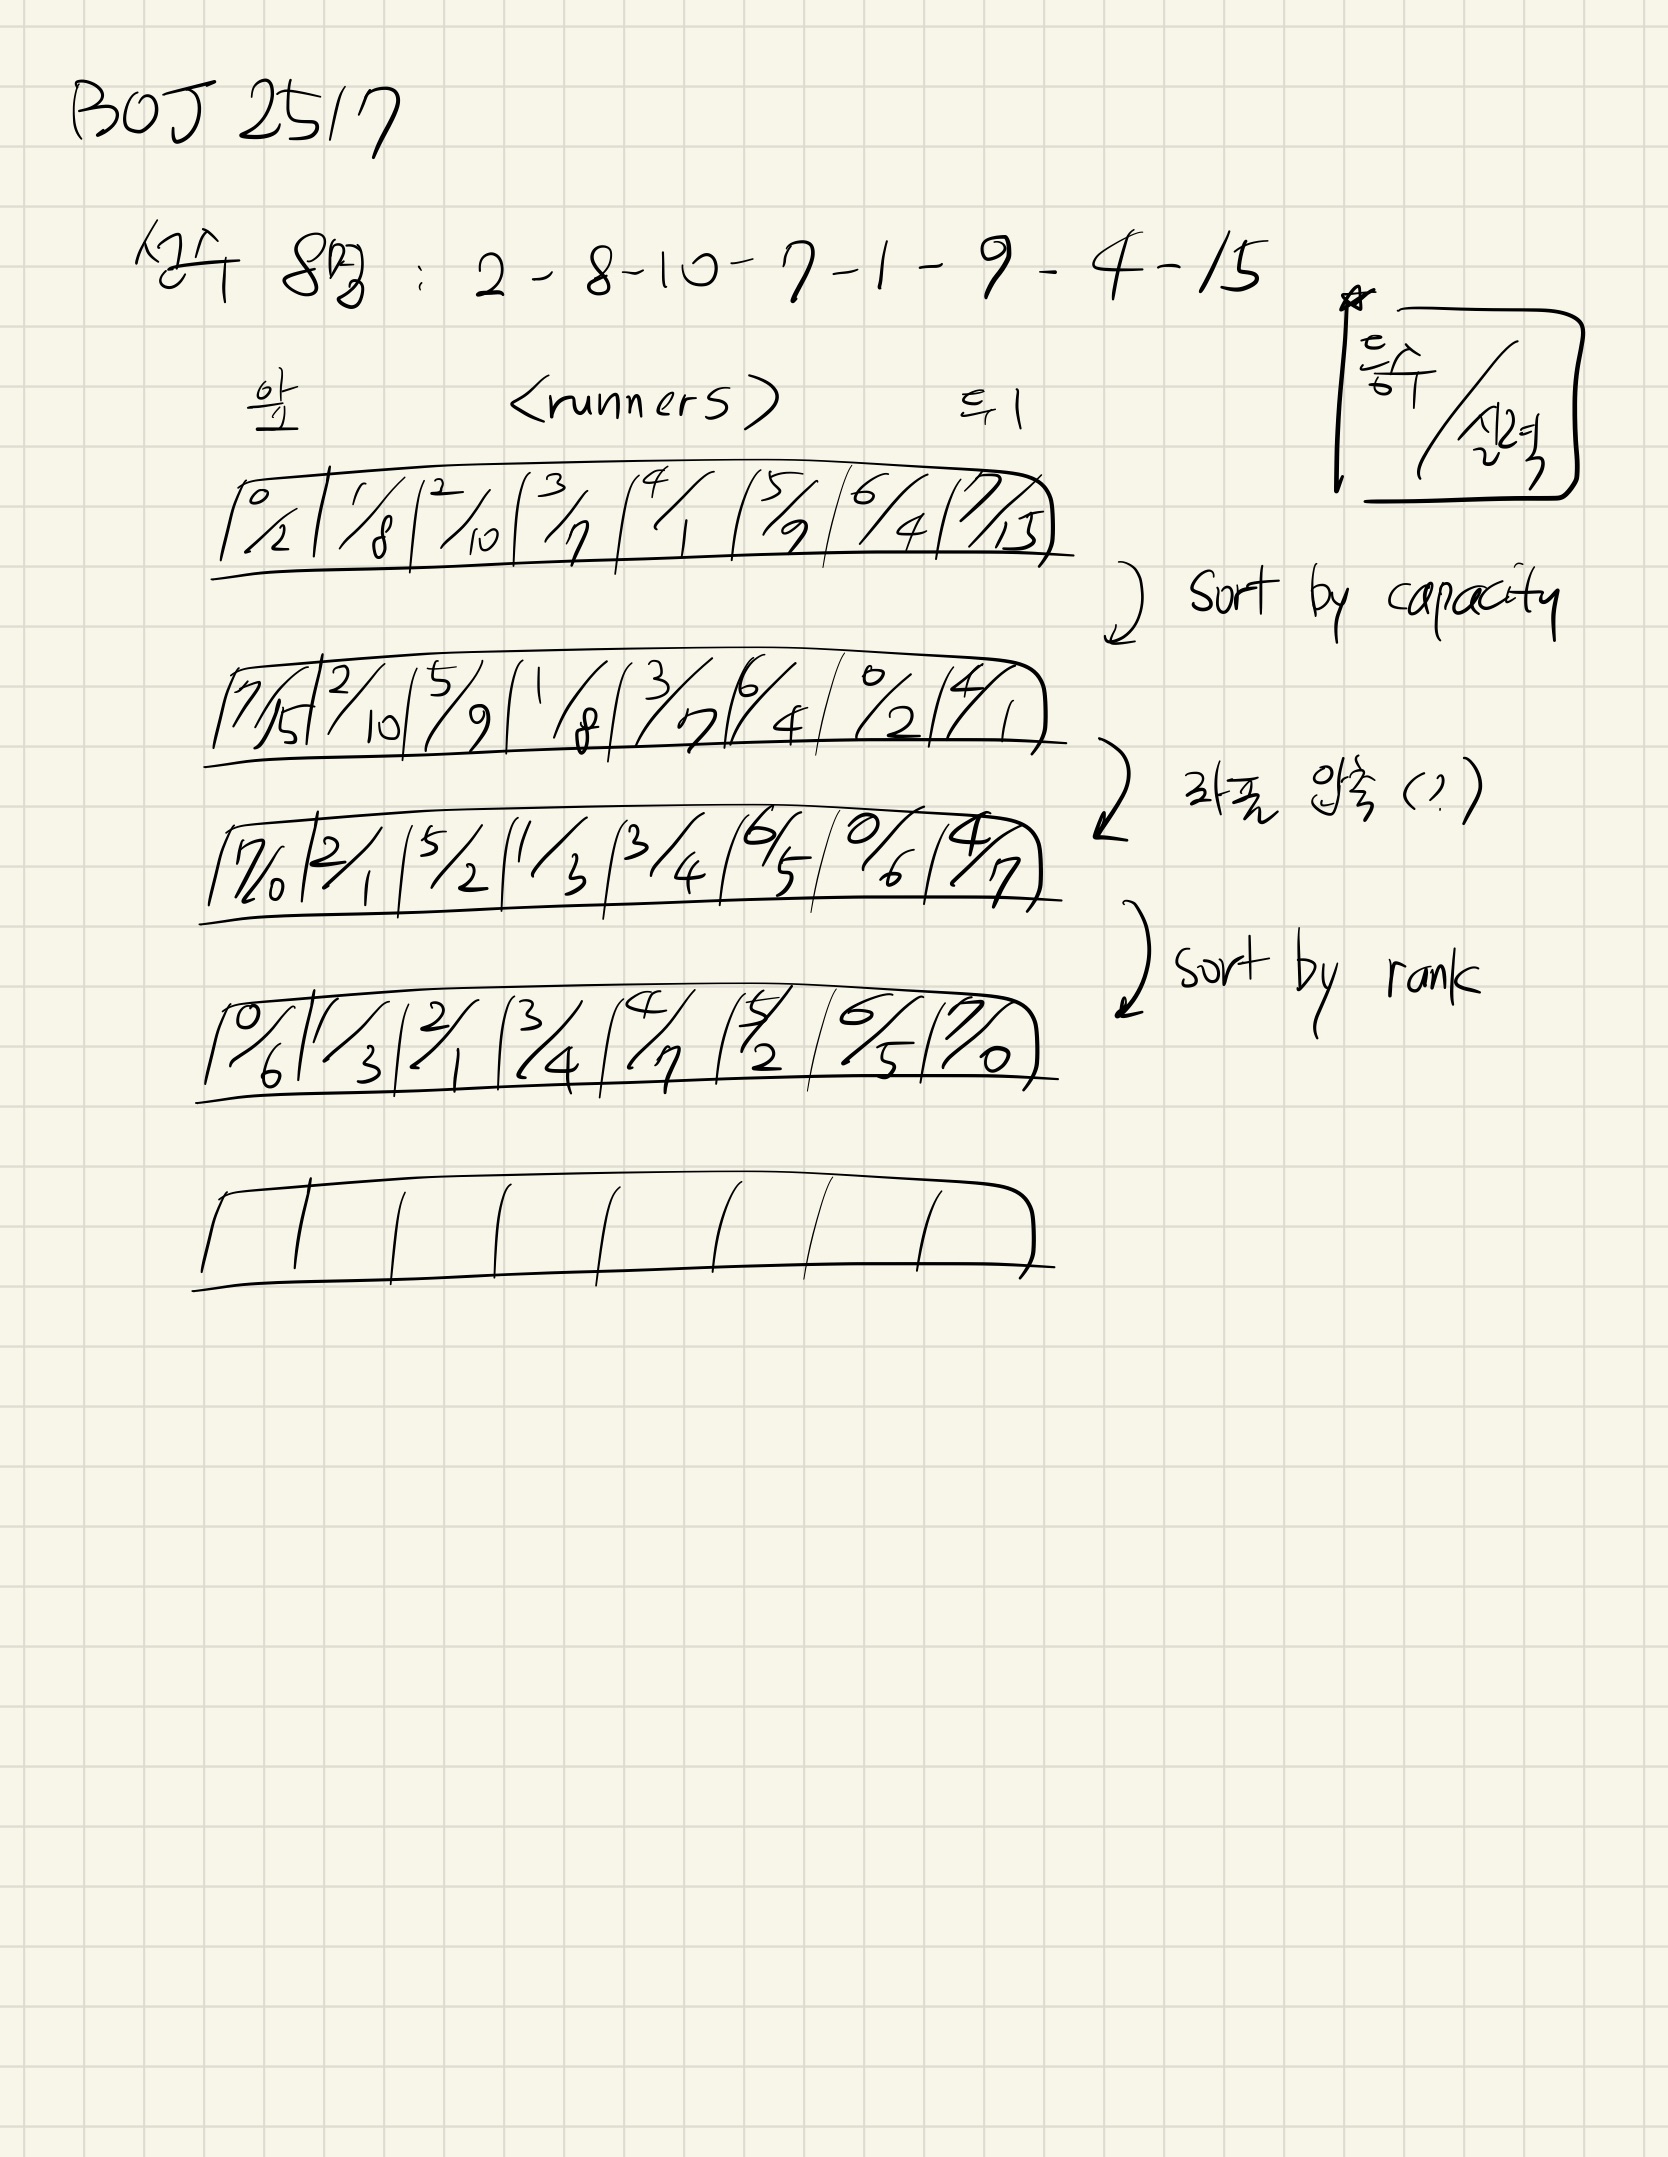 BOJ 2517
선수 8명 : 2 - 8 - 10 - 7 - 1 - 9 - 4 - 15
앞 <runners> 뒤
등수 / 실력
0/2 1/8 2/10 3/7 4/1 5/9 6/4 7/15
sort by capacity
7/15 2/10 5/9 1/8 3/7 6/4 0/2 4/1
좌표 압축 (?)
7/0 2/1 5/2 1/3 3/4 6/5 0/6 4/7
sort by rank
0/6 1/3 2/1 3/4 4/7 5/2 6/5 7/0